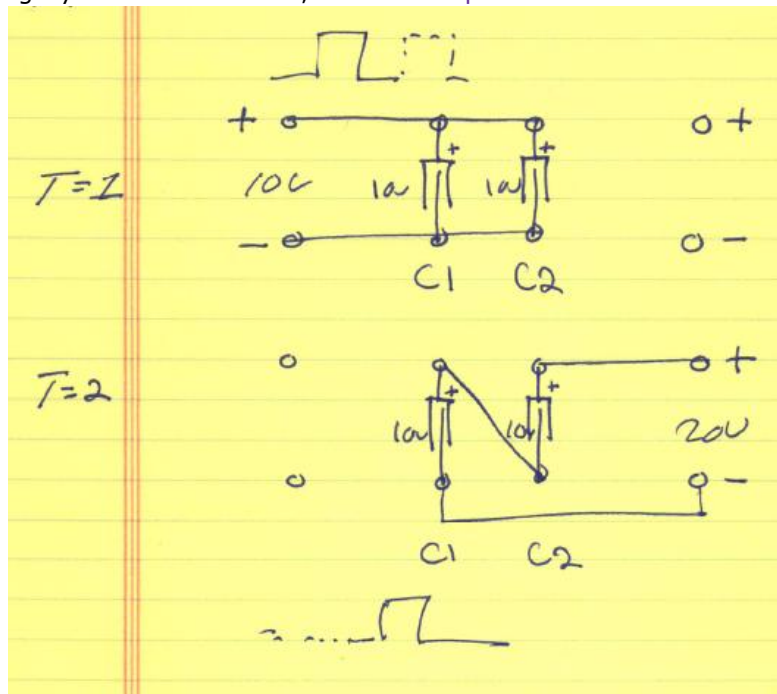 + +
T=1 10V 10V + 10V +
- -
C1 C2
T=2 +
10V + 10V + 20V
-
C1 C2